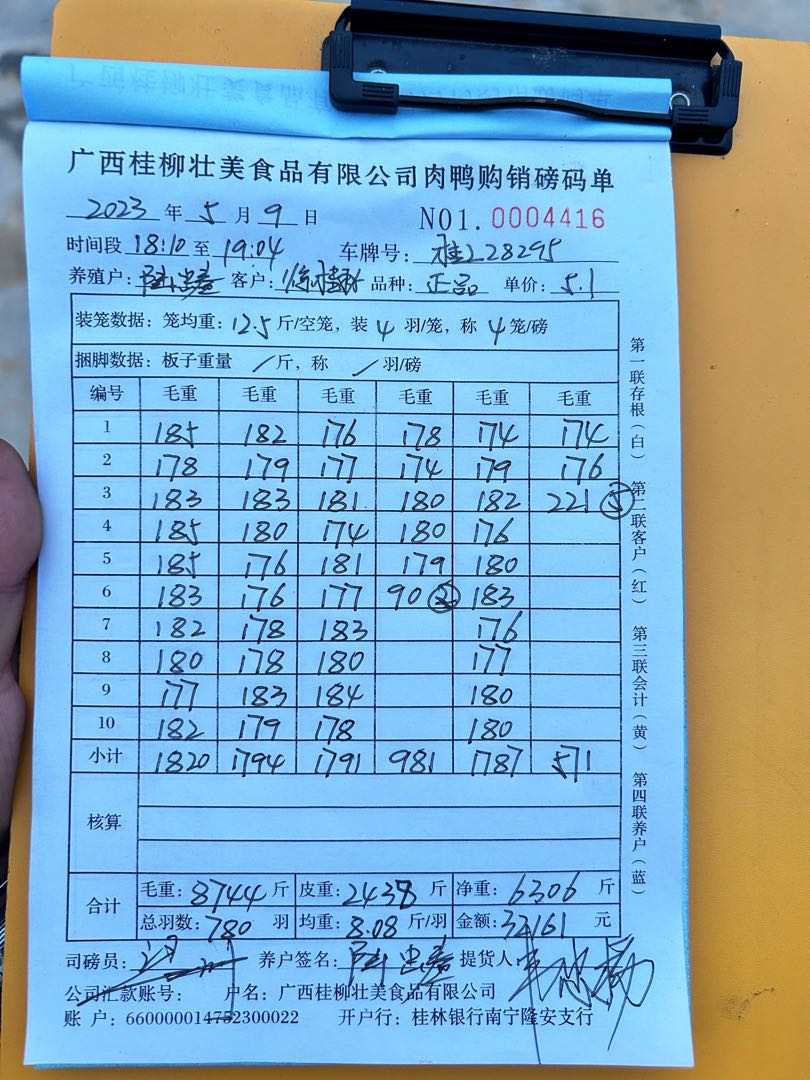 广西桂柳壮美食品有限公司肉鸭购销磅码单
2023 年 5 月 9 日 NO1. 0004416
时间段 18:10 至 19:04 车牌号: 桂L28295
养殖户: 客户: 品种: 正品 单价: 5.1
装笼数据: 笼均重: 12.5 斤/空笼, 装 4 羽/笼, 称 4 笼/磅
捆脚数据: 板子重量 / 斤, 称 / 羽/磅
编号 毛重 毛重 毛重 毛重 毛重 毛重
1 185 182 176 178 174 174
2 178 179 177 174 179 176
3 183 183 181 180 182 221 ⑤
4 185 180 174 180 176
5 185 176 181 179 180
6 183 176 177 90 ② 183
7 182 178 183 176
8 180 178 180 177
9 177 183 184 180
10 182 179 178 180
小计 1820 1794 1791 981 1787 571
核算
合计 毛重: 8744 斤 皮重: 2438 斤 净重: 6306 斤
总羽数: 780 羽 均重: 8.08 斤/羽 金额: 32161 元
司磅员: 养户签名: 提货人:
公司汇款账号: 户名: 广西桂柳壮美食品有限公司
账 户: 660000014752300022 开户行: 桂林银行南宁隆安支行
第一联存根(白) 第二联客户(红) 第三联会计(黄) 第四联养户(蓝)